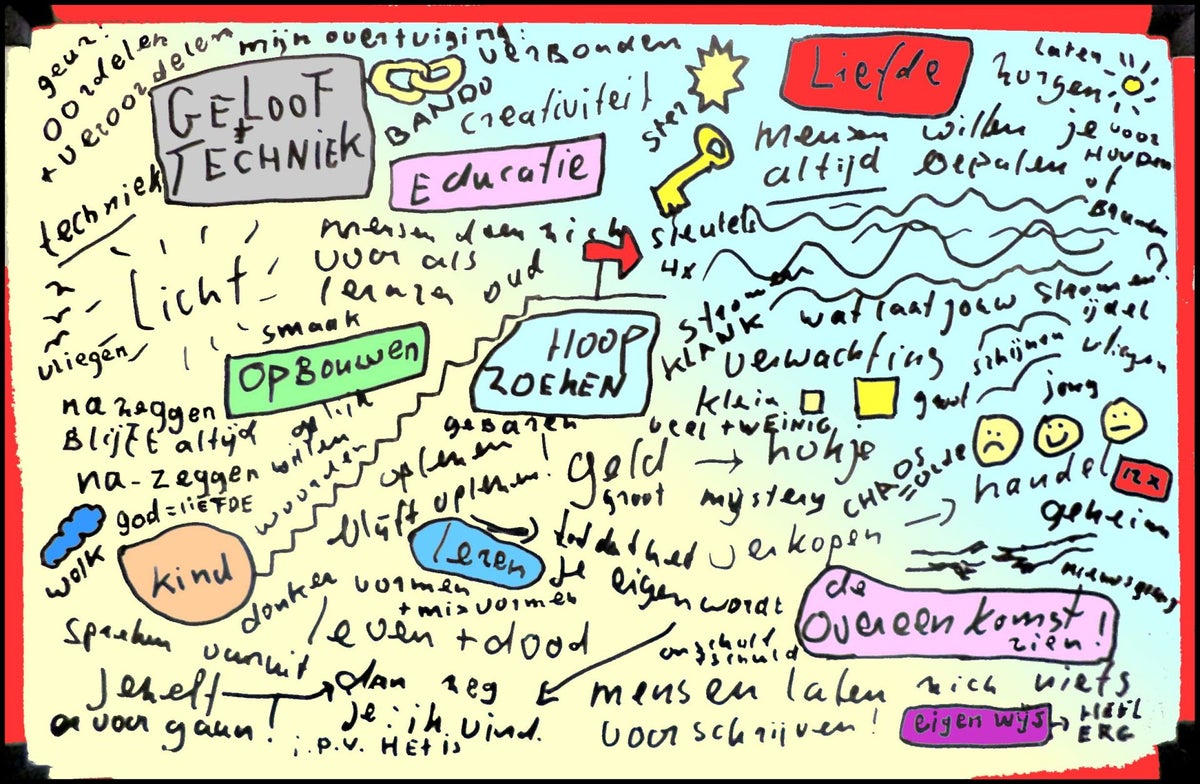 geur!
oordelen
+ veroordelen
mijn overtuiging:
GELOOF
+
TECHNIEK
BAND
VERBONDEN
creativiteit
Ster
Liefde
Laten
zorgen
Educatie
mensen willen je
altijd bepalen
voor
HOUDEN
of
techniek
Licht
vliegen
mensen doen zich
voor als
oud
smaak
sleutels
4x
stromen
KLANK
wat laat jouw stromen?
ijdel
verwachting
schijnen
vliegen
OPBOUWEN
HOOP
ZOEKEN
klein
groot
jong
veel + WEINIG
na zeggen
Blijft altijd
na-zeggen
willen
woorden
gebaren
oplenen
geld → hokje
groot mystery
CHAOS
= orde
handel
12x
god = LIEFDE
wolk
kind
blijft oplenen!
leren
totdat het
je eigen wordt
verkopen
geheim
nieuwsgierig
donker
vormen
+ misvormen
leven + dood
de
overeenkomst
zien!
onschuld
schuld
spreken vanuit
Jezelf
dan zeg
je: ik vind.
i.p.v. HET is
ervoor gaan!
mensen laten zich niets
voorschrijven!
eigen wijs
HEEL
ERG